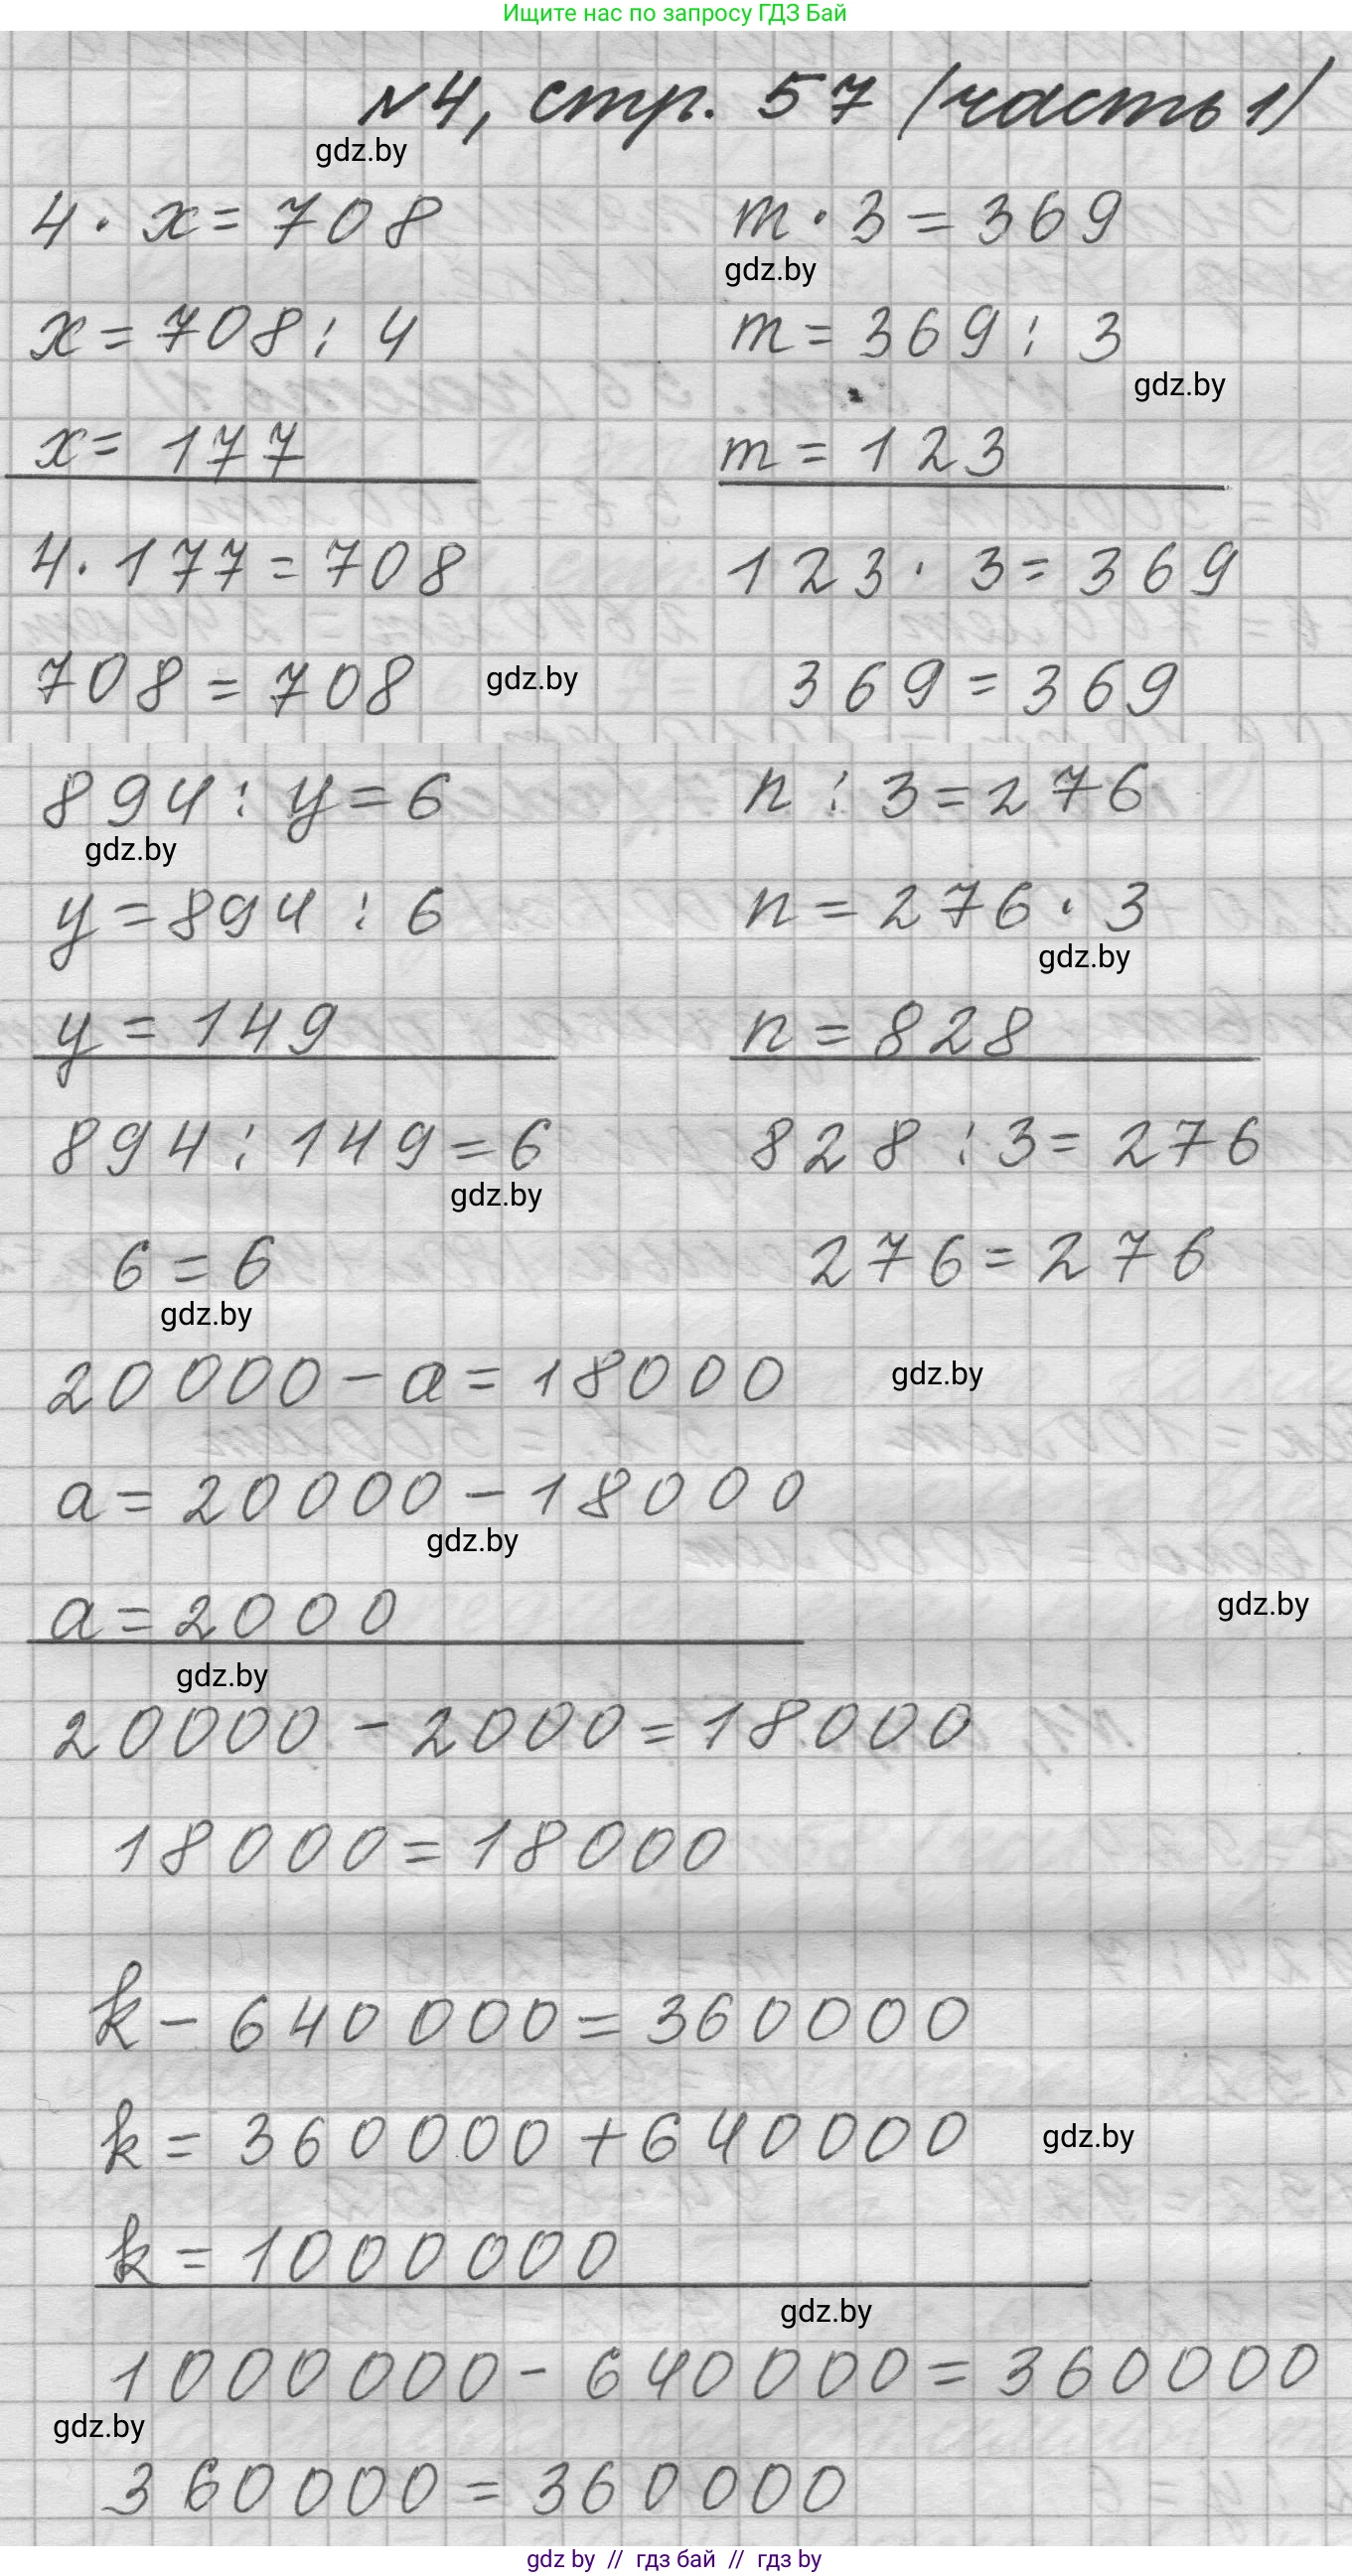 Ищите нас по запросу ГДЗ Бай
№4, стр. 57 (часть 1)
gdz.by
4 · x = 708
x = 708 : 4
x = 177
4 · 177 = 708
708 = 708
gdz.by
m · 3 = 369
gdz.by
m = 369 : 3
gdz.by
m = 123
123 · 3 = 369
369 = 369
894 : y = 6
gdz.by
y = 894 : 6
y = 149
894 : 149 = 6
gdz.by
6 = 6
gdz.by
n : 3 = 276
n = 276 · 3
gdz.by
n = 828
828 : 3 = 276
276 = 276
20000 - a = 18000
gdz.by
a = 20000 - 18000
gdz.by
a = 2000
gdz.by
gdz.by
20000 - 2000 = 18000
18000 = 18000
k - 640000 = 360000
k = 360000 + 640000
gdz.by
k = 1000000
gdz.by
1000000 - 640000 = 360000
gdz.by
360000 = 360000
gdz by // гдз бай // гдз by